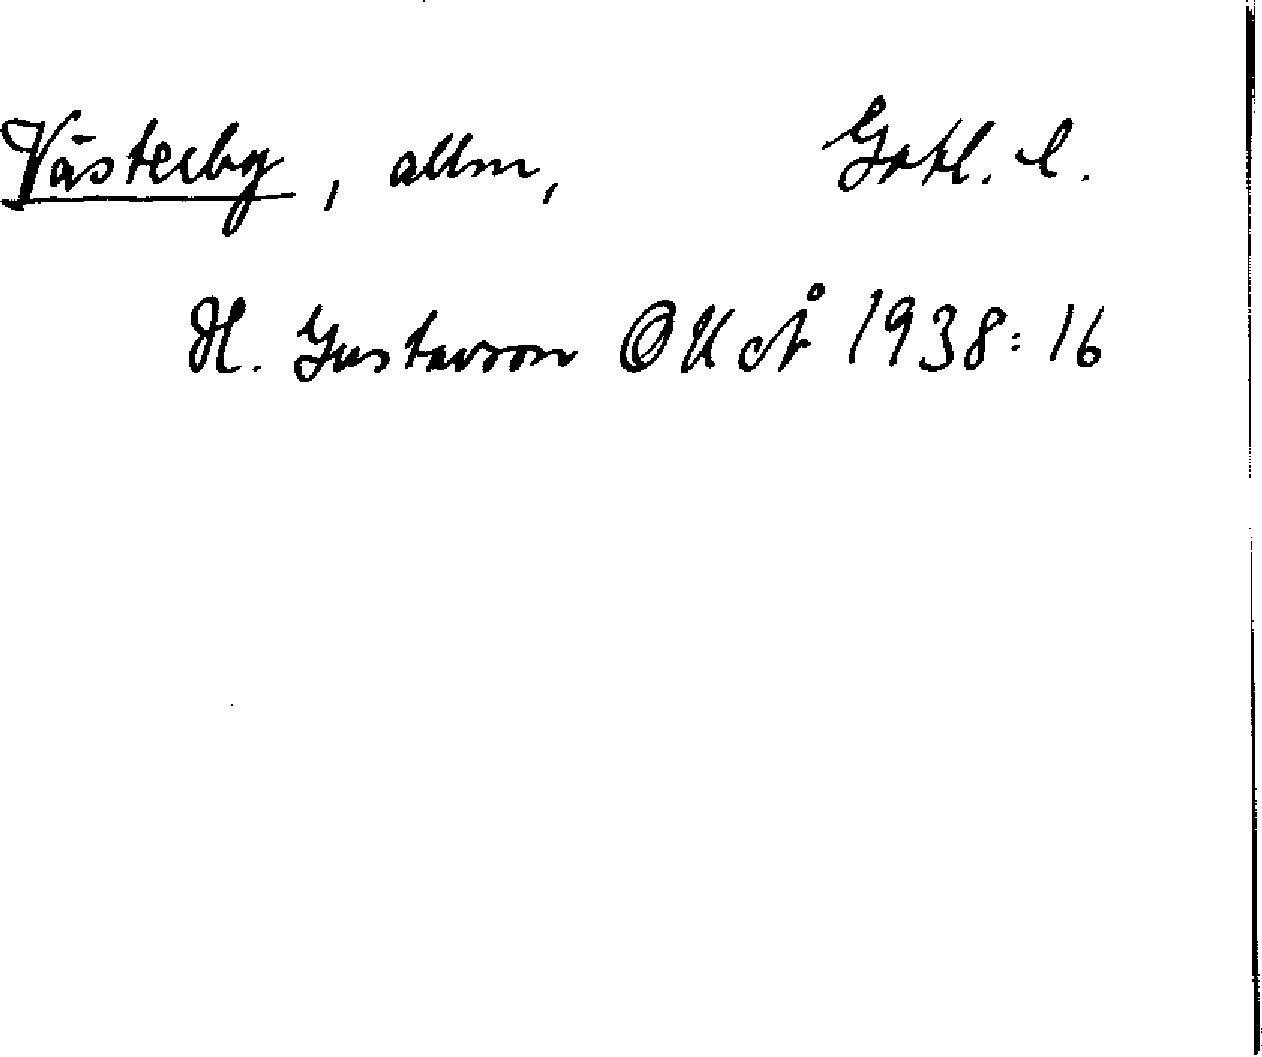 Västerby, allm, Gotl. l.
H. Gustavson OUÅ 1938:16